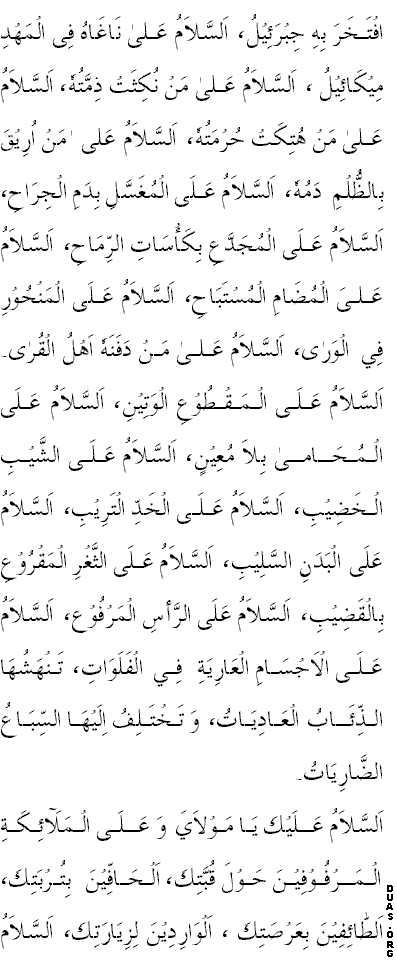 افْتَخَرَ بِهِ جِبْرَئِيْلُ، اَلسَّلاَمُ عَلىٰ نَاغَاهُ فِى الْمَهْدِ
مِيْكَائِيْلُ ، اَلسَّلاَمُ عَلىٰ مَنْ نُكِثَتْ ذِمَّتُهٗ، اَلسَّلاَمُ
عَلىٰ مَنْ هُتِكَتْ حُرْمَتُهٗ، اَلسَّلاَمُ عَلى ٰ مَنْ اُرِيْقَ
بِالظُّلْمِ دَمُهٗ، اَلسَّلاَمُ عَلَى الْمُغَسَّلِ بِدَمِ الْجِرَاحِ،
اَلسَّلاَمُ عَلَى الْمُجَدَّعِ بِكَأْسَاتِ الرِّمَاحِ، اَلسَّلاَمُ
عَلىَ الْمُضَامِ الْمُسْتَبَاحِ، اَلسَّلاَمُ عَلَى الْمَنْحُوْرِ
فِي الْوَرٰى، اَلسَّلاَمُ عَلىٰ مَنْ دَفَنَهٗ اَهْلُ الْقُرٰى۔
اَلسَّلاَمُ عَلَى الْمَقْطُوْعِ الْوَتِيْنِ، اَلسَّلاَمُ عَلَى
الْمُحَامىٰ بِلاَ مُعِيْنٍ، اَلسَّلاَمُ عَلَى الشَّيْبِ
الْخَضِيْبِ، اَلسَّلاَمُ عَلَى الْخَدِّ التَّرِيْبِ، اَلسَّلاَمُ
عَلَى الْبَدَنِ السَّلِيْبِ، اَلسَّلاَمُ عَلَى الثَّغْرِ الْمَقْرُوْعِ
بِالْقَضِيْبِ، اَلسَّلاَمُ عَلَى الرَّأسِ الْمَرْفُوْعِ، اَلسَّلاَمُ
عَلَى الْاَجْسَامِ الْعَارِيَةِ فِي الْفَلَوَاتِ، تَنْهَشُهَا
الذِّئَابُ الْعَادِيَاتُ، وَ تَخْتَلِفُ اِلَيْهَا السِّبَاعُ
الضَّارِيَاتُ۔
اَلسَّلاَمُ عَلَيْكَ يَا مَوْلاَيَ وَ عَلَى الْمَلَآئِكَةِ
الْمَرْفُوْفِيْنَ حَوْلَ قُبَّتِكَ، اَلْحَافِّيْنَ بِتُرْبَتِكَ،
اَلطَّائِفِيْنَ بِعَرْصَتِكَ ، اَلْوَارِدِيْنَ لِزِيَارَتِكَ، اَلسَّلاَمُ
DUAS.ORG